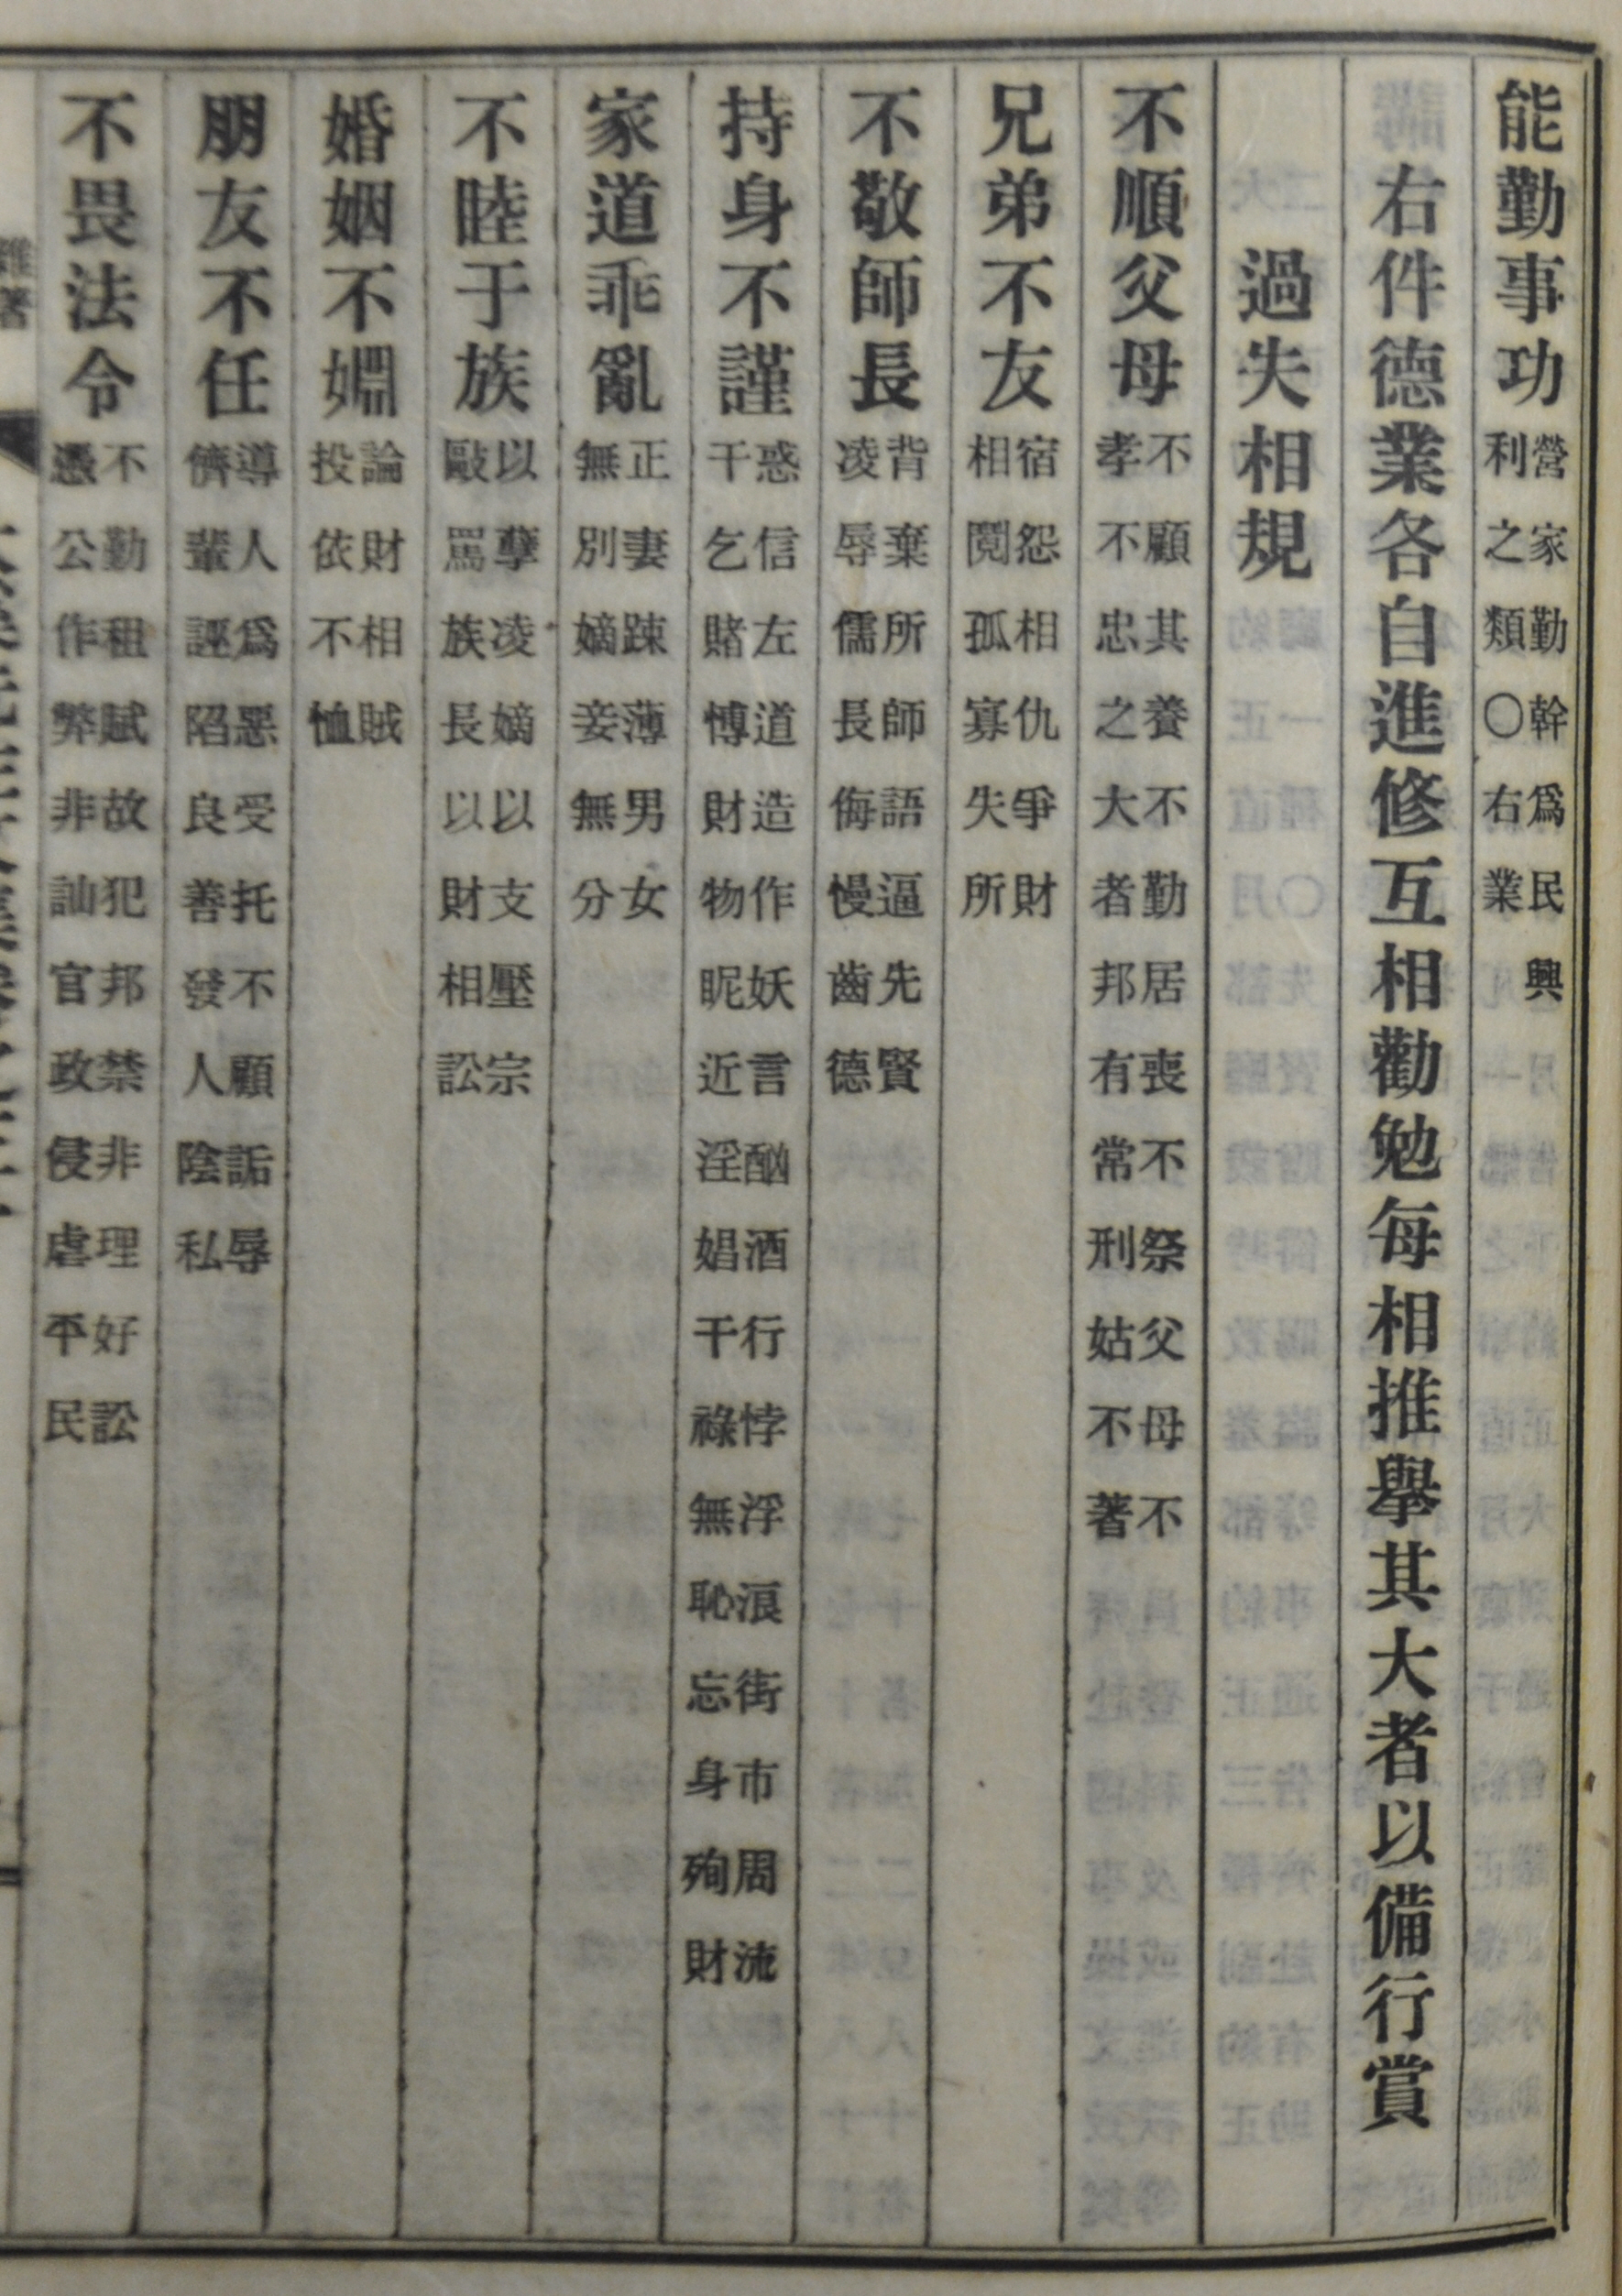 能勤事功 營家勤幹爲民興利之類〇右業
右件德業各自進修互相勸勉每相推擧其大者以備行賞
過失相規
不順父母 不顧其養不勤居喪不祭父母不孝不忠之大者邦有常刑姑不著
兄弟不友 宿怨相仇爭財相鬩孤寡失所
不敬師長 背棄所師語逼先賢凌辱儒長侮慢齒德
持身不謹 惑信左道造作妖言酗酒行悖浮浪街市周流干乞賭博財物昵近淫娼干祿無恥忘身殉財
家道乖亂 正妻踈薄男女無別嫡妾無分
不睦于族 以孽凌嫡以支壓宗毆罵族長以財相訟
婚姻不婣 論財相賊投依不恤
朋友不任 導人爲惡受托不顧詬辱儕輩誣陷良善發人陰私
不畏法令 不勤租賦故犯邦禁非理好訟憑公作弊非訕官政侵虐平民
雜著